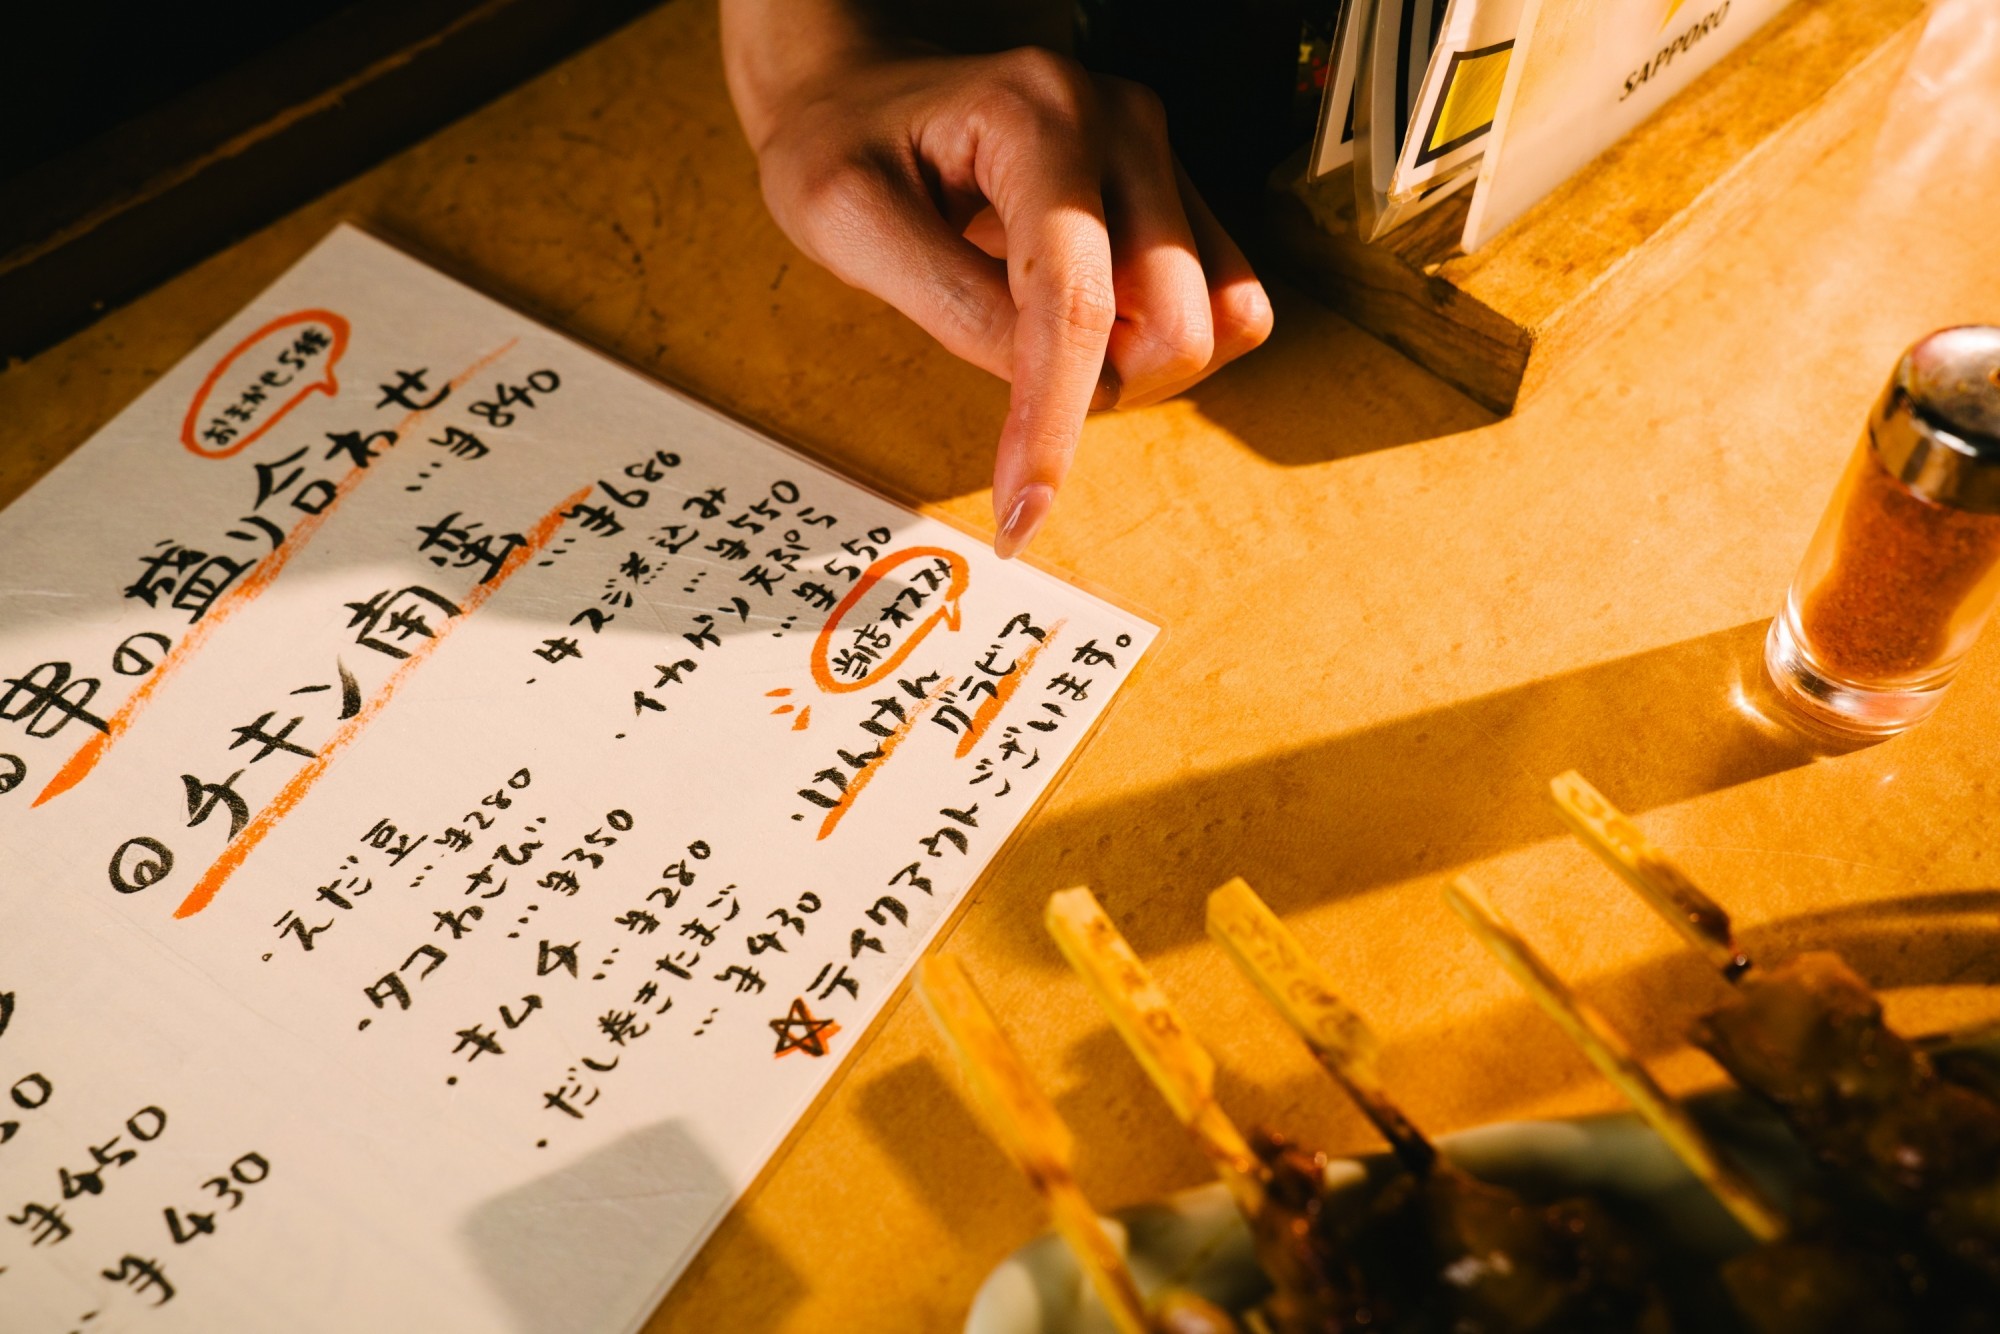 おまかせ5種
串の盛り合わせ
…¥840
@チキン南蛮
…¥680
・牛スジ煮込み
…¥550
・イカゲソ天ぷら
…¥550
当店オススメ
・けんけん
グラビア
・えだ豆
…¥280
・タコわさび
…¥350
・キムチ
…¥280
・だし巻きたまご
…¥430
☆テイクアウトございます。
¥450
¥430
SAPPORO